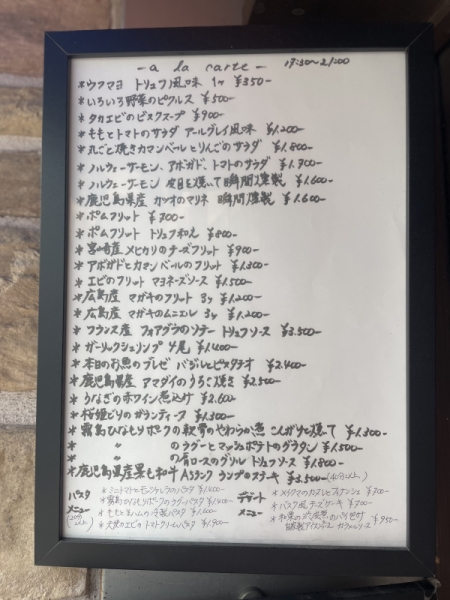 - a la carte -  17:30~21:00
*ウフマヨ トリュフ風味 1ヶ ¥350-
*いろいろ野菜のピクルス ¥500-
*タカエビのビスクスープ ¥900-
*ももとトマトのサラダ アールグレイ風味 ¥1.200-
*丸ごと焼きカマンベールとりんごのサラダ ¥1.800-
*ノルウェーサーモン、アボガド、トマトのサラダ ¥1.700-
*ノルウェーサーモン 皮目を焼いて瞬間燻製 ¥1.600-
*鹿児島県産 カツオのマリネ 瞬間燻製 ¥1.600-
*ポムフリット ¥700-
*ポムフリット トリュフ和え ¥800-
*宮崎産 メヒカリのチーズフリット ¥900-
*アボガドとカマンベールのフリット ¥1.300-
*エビのフリット マヨネーズソース ¥1.500-
*広島産 マガキのフリット 3ヶ ¥1.200-
*広島産 マガキのムニエル 3ヶ ¥1.200-
*フランス産 フォアグラのソテー トリュフソース ¥3.500-
*ガーリックシュリンプ 4尾 ¥1.400-
*本日のお魚のブレゼ バジルとピスタチオ ¥2.400-
*鹿児島県産 アマダイのうろこ焼き ¥2.500-
*うなぎの赤ワイン煮込み ¥2.600-
*桜姫どりのガランティーヌ ¥1.300-
*霧島ひなもりポークの軟骨のやわらか煮 こんがりと焼いて ¥1.300-
* 〃 のラグーとマッシュポテトのグラタン ¥1.500-
* 〃 の肩ロースのグリル トリュフソース ¥1.800-
*鹿児島県産黒毛和牛 A5ランク ランプのステーキ ¥3.500-
パスタ
メニュー
*ミニトマトとモッツァレラのパスタ
*霧島ひなもりポークのラグーパスタ
*ももと生ハムの冷製パスタ
*大ぶりエビのトマトクリームパスタ ¥1.900-
デザート
メニュー
¥700-
*バスク風チーズケーキ ¥700-
¥950-